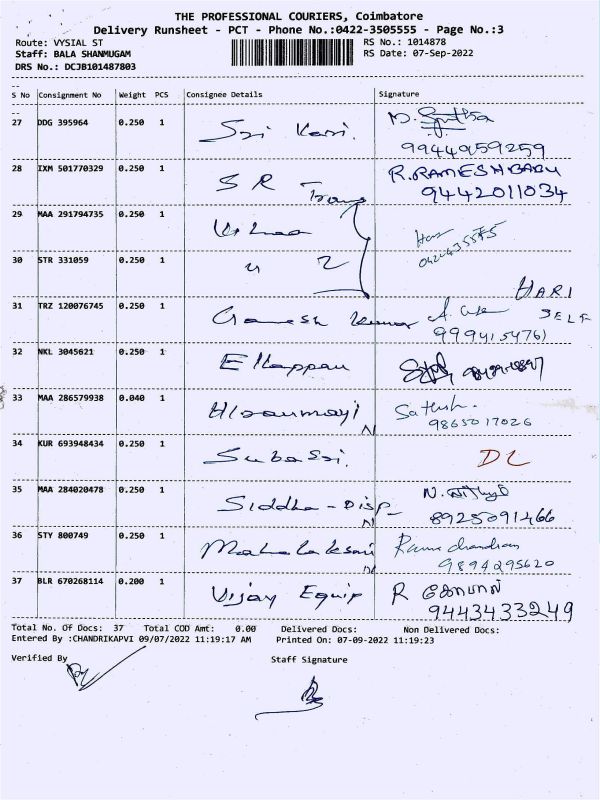 THE PROFESSIONAL COURIERS, Coimbatore
Delivery Runsheet - PCT - Phone No.:0422-3505555 - Page No.:3
Route: VYSIAL ST RS No.: 1014878
Staff: BALA SHANMUGAM RS Date: 07-Sep-2022
DRS No.: DCJB101487803
S No Consignment No Weight PCS Consignee Details Signature
27 DDG 395964 0.250 1 Sri Kari.
9944959259
28 IXM 501770329 0.250 1 S R Trans R.RAMESH BABU
9442011034
29 MAA 291794735 0.250 1
30 STR 331059 0.250 1
HARI
SELF
31 TRZ 120076745 0.250 1 Ganesh Kumar
32 NKL 3045621 0.250 1 Ellappan
33 MAA 286579938 0.040 1 Sathish.
9865017026
34 KUR 693948434 0.250 1 Subasri. DL
35 MAA 284020478 0.250 1 Siddha - Disp N.
8925091466
36 STY 800749 0.250 1 Mahalaksmi Ramachandran
9894295620
37 BLR 670268114 0.200 1 Vijay Equip R கோபால்
9443433249
Total No. Of Docs: 37 Total COD Amt: 0.00 Delivered Docs: Non Delivered Docs:
Entered By :CHANDRIKAPVI 09/07/2022 11:19:17 AM Printed On: 07-09-2022 11:19:23
Verified By Staff Signature